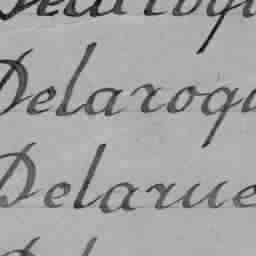 Delaroqu
Delaroqu
Delarue